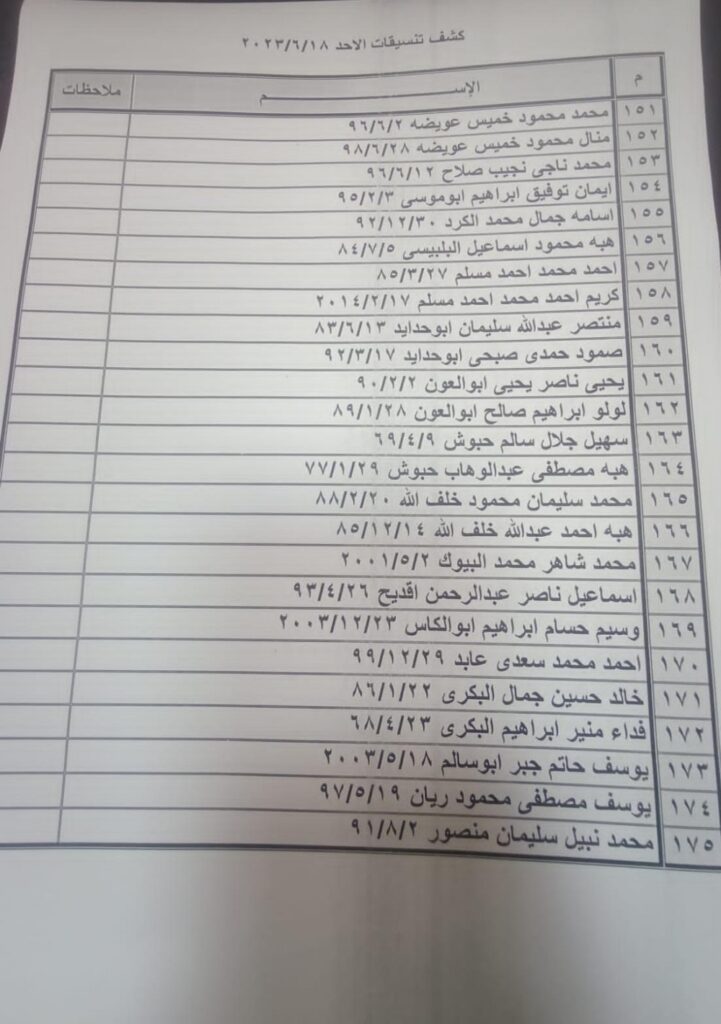 كشف تنسيقات الاحد ٢٠٢٣/٦/١٨
م الإســـم ملاحظات
١٥١ محمد محمود خميس عويضه ٩٦/٦/٢
١٥٢ منال محمود خميس عويضه ٩٨/٦/٢٨
١٥٣ محمد ناجى نجيب صلاح ٩٦/٦/١٢
١٥٤ ايمان توفيق ابراهيم ابوموسى ٩٥/٢/٣
١٥٥ اسامه جمال محمد الكرد ٩٢/١٢/٣٠
١٥٦ هبه محمود اسماعيل البلبيسى ٨٤/٧/٥
١٥٧ احمد محمد احمد مسلم ٨٥/٣/٢٧
١٥٨ كريم احمد محمد احمد مسلم ٢٠١٤/٢/١٧
١٥٩ منتصر عبدالله سليمان ابوحدايد ٨٣/٦/١٣
١٦٠ صمود حمدى صبحى ابوحدايد ٩٢/٣/١٧
١٦١ يحيى ناصر يحيى ابوالعون ٩٠/٢/٢
١٦٢ لولو ابراهيم صالح ابوالعون ٨٩/١/٢٨
١٦٣ سهيل جلال سالم حبوش ٦٩/٤/٩
١٦٤ هبه مصطفى عبدالوهاب حبوش ٧٧/١/٢٩
١٦٥ محمد سليمان محمود خلف الله ٨٨/٢/٢٠
١٦٦ هبه احمد عبدالله خلف الله ٨٥/١٢/١٤
١٦٧ محمد شاهر محمد البيوك ٢٠٠١/٥/٢
١٦٨ اسماعيل ناصر عبدالرحمن اقديح ٩٣/٤/٢٦
١٦٩ وسيم حسام ابراهيم ابوالكاس ٢٠٠٣/١٢/٢٣
١٧٠ احمد محمد سعدى عابد ٩٩/١٢/٢٩
١٧١ خالد حسين جمال البكرى ٨٦/١/٢٢
١٧٢ فداء منير ابراهيم البكرى ٦٨/٤/٢٣
١٧٣ يوسف حاتم جبر ابوسالم ٢٠٠٣/٥/١٨
١٧٤ يوسف مصطفى محمود ريان ٩٧/٥/١٩
١٧٥ محمد نبيل سليمان منصور ٩١/٨/٢